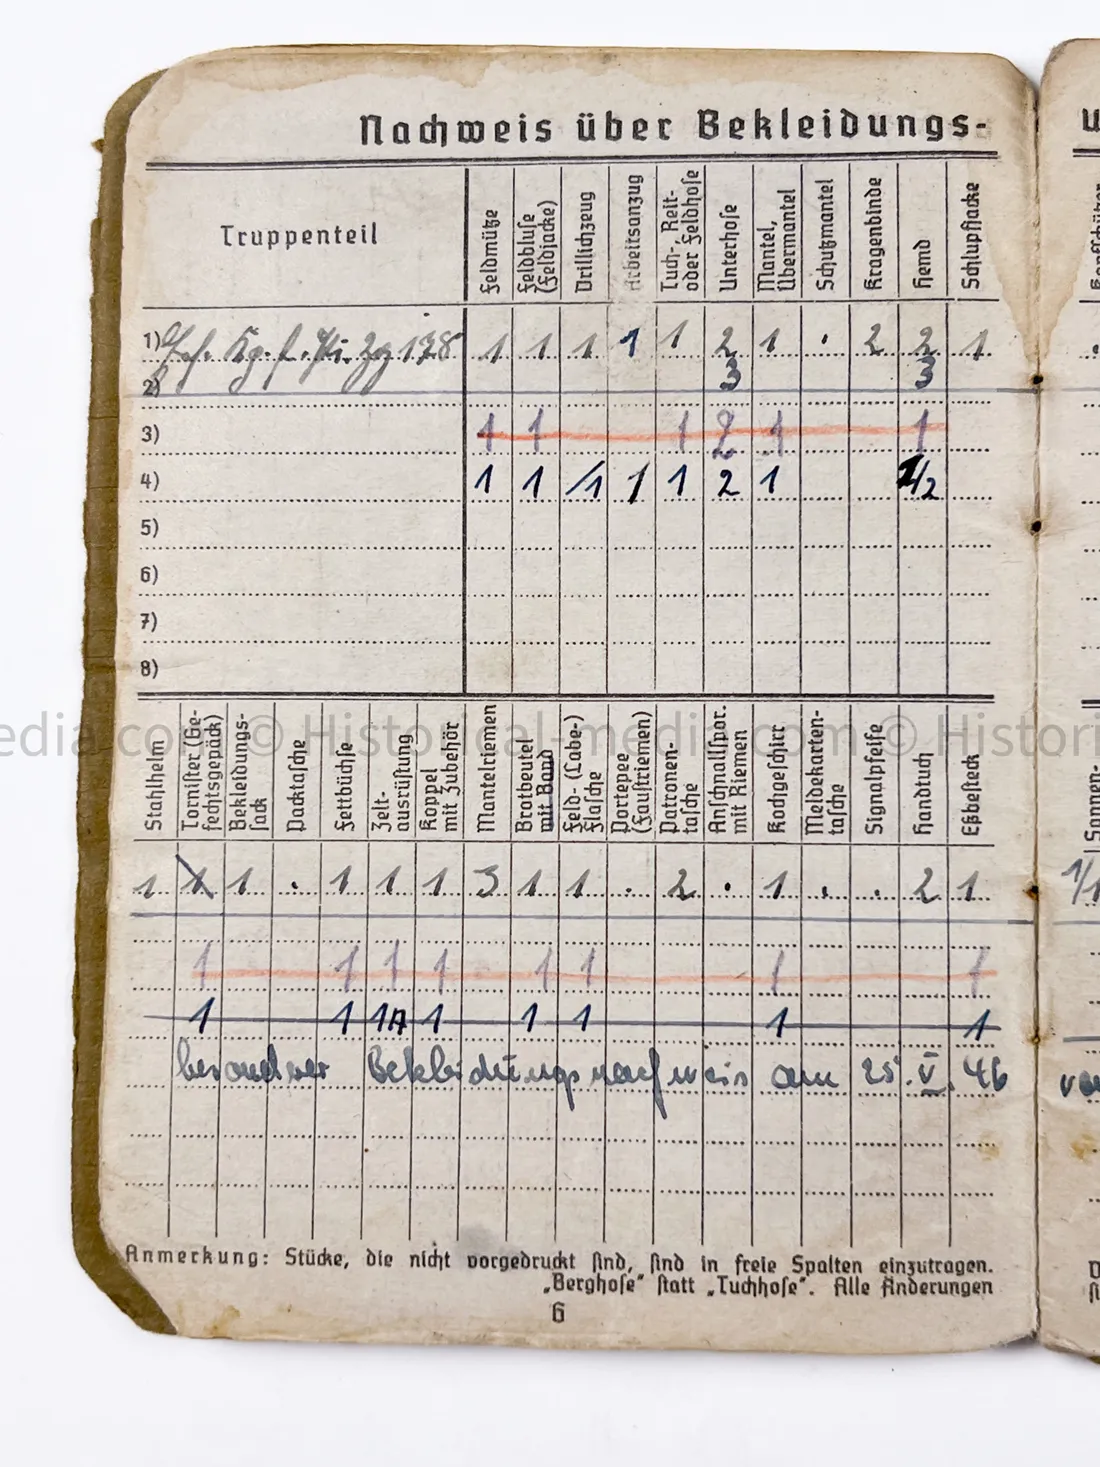 Nachweis über Bekleidungs-
Truppenteil
Feldmütze
Feldbluse (Feldjacke)
Drillichzeug
Arbeitsanzug
Tuch-, Reit- oder Feldhose
Unterhose
Mantel, Übermantel
Schutzmantel
Kragenbinde
Hemd
Schlupfjacke
1) 1 1 1 1 1 2 1 . 2 2 1
2) 3 3
3) 1 1 1 2 1 1
4) 1 1 /1 1 1 2 1 1/2
5)
6)
7)
8)
Stahlhelm
Tornister (Ge- fechtsgepäck)
Bekleidungs- sack
Packtasche
Fettbüchse
Zelt- ausrüstung
Koppel mit Zubehör
Mantelriemen
Brotbeutel mit Band
Feld- (Labe-) Flasche
Portepee (Faustriemen)
Patronen- tasche
Anschnallspor. mit Riemen
Kochgeschirr
Meldekarten- tasche
Signalpfeife
Handtuch
Eßbesteck
1 1 1 . 1 1 1 3 1 1 . 2 . 1 . . 2 1
1 1 1 1 1 1 1 1
1 1 1 1 1 1 1 1
besonderer Bekleidungsnachweis am 25. V. 46
Anmerkung: Stücke, die nicht vorgedruckt sind, sind in freie Spalten einzutragen.
„Berghose“ statt „Tuchhose“. Alle Änderungen
6
1/1
© Historical-media.com ©